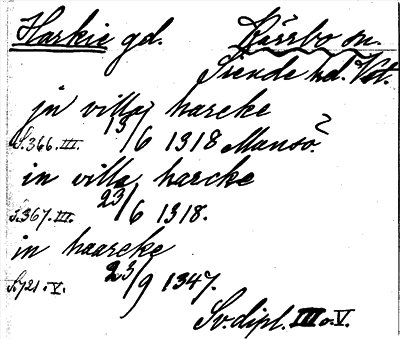 Harkie gd. Kärrbo sn.
Siende hd. Vst.
in villa harcke
S.366.III. 13/6 1318 Mansö?
in villa harcke
S.367.III. 23/6 1318.
in haarcke
S.721.V. 23/9 1347.
Sv.dipl. III o. V.